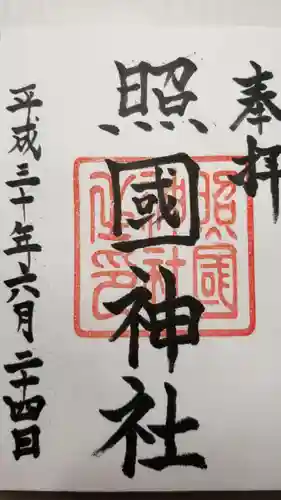 奉拝
照國神社
照國神社之印
平成三十年六月二十四日